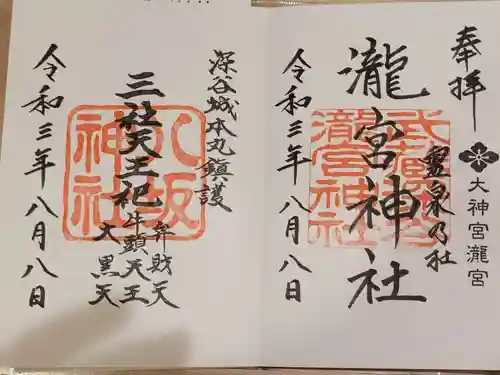 奉拝
大神宮瀧宮
霊泉乃社
瀧宮神社
瀧宮神社
令和三年八月八日
深谷城本丸鎮護
三社天王祀
弁財天
牛頭天王
大黒天
八坂神社
令和三年八月八日